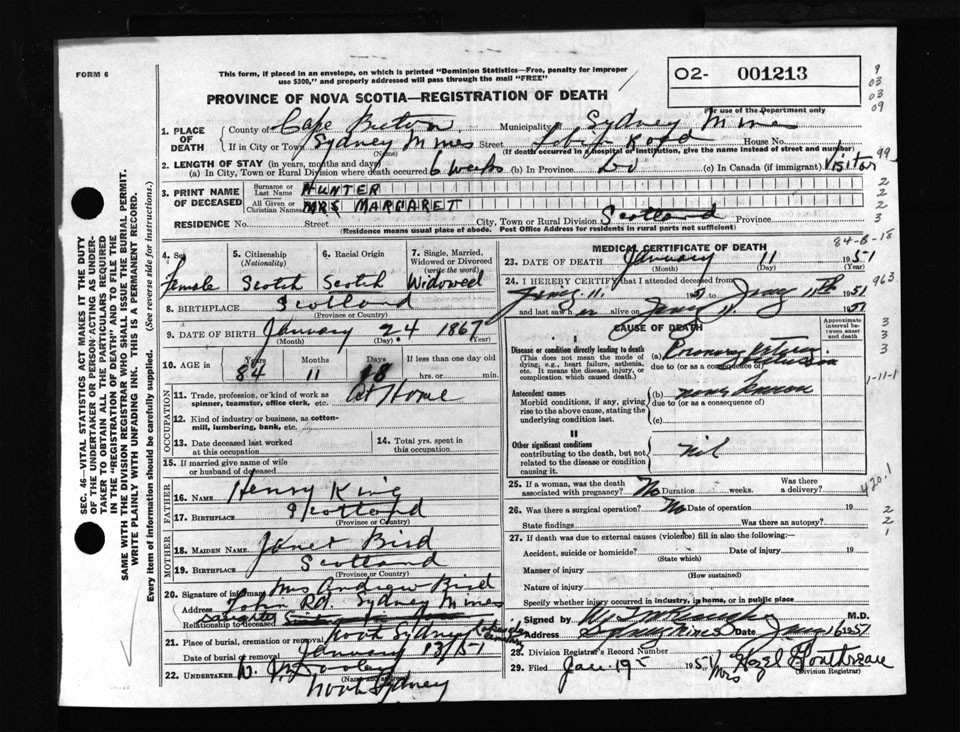 FORM 6
This form, if placed in an envelope, on which is printed "Dominion Statistics—Free, penalty for improper
use $300," and properly addressed will pass through the mail "FREE"
O2- 001213
For use of the Department only
9
03
03
09
PROVINCE OF NOVA SCOTIA—REGISTRATION OF DEATH
1. PLACE OF DEATH
County of Cape Breton Municipality Sydney Mines
If in City or Town Sydney Mines Street House No.
(Name) (If death occurred in a hospital or institution, give the name instead of street and number)
2. LENGTH OF STAY (in years, months and days)
(a) In City, Town or Rural Division where death occurred 6 weeks (b) In Province do (c) In Canada (if immigrant) Visitor
99
3. PRINT NAME OF DECEASED
Surname or Last Name HUNTER
All Given or Christian Names MRS MARGARET
2
2
3
RESIDENCE No. Street City, Town or Rural Division Scotland Province
(Residence means usual place of abode. Post Office Address for residents in rural parts not sufficient)
4. Sex Female
5. Citizenship (Nationality) Scotch
6. Racial Origin Scotch
7. Single, Married, Widowed or Divorced (write the word) Widowed
8. BIRTHPLACE Scotland
(Province or Country)
9. DATE OF BIRTH January 24 1867
(Month) (Day) (Year)
10. AGE in Years Months Days If less than one day old
84 11 18 hrs. or min.
OCCUPATION
11. Trade, profession, or kind of work as spinner, teamster, office clerk, etc. At Home
12. Kind of industry or business, as cotton-mill, lumbering, bank, etc.
13. Date deceased last worked at this occupation
14. Total yrs. spent in this occupation
15. If married give name of wife or husband of deceased
FATHER
16. NAME Henry King
17. BIRTHPLACE Scotland
(Province or Country)
MOTHER
18. MAIDEN NAME Janet Bird
19. BIRTHPLACE Scotland
(Province or Country)
20. Signature of informant Mrs Andrew Bird
Address John Rd. Sydney Mines
Relationship to deceased Daughter
21. Place of burial, cremation or removal North Sydney
Date of burial or removal January 13/51
22. UNDERTAKER W. Dooley
(Name and address)
North Sydney
MEDICAL CERTIFICATE OF DEATH
84-8-18
23. DATE OF DEATH January 11 1951
(Month) (Day) (Year)
24. I HEREBY CERTIFY that I attended deceased from
963
Jany. 11 1951 to Jany 11th 1951
and last saw her alive on Jany 11. 1951
CAUSE OF DEATH
Approximate interval between onset and death
3
3
3
I
Disease or condition directly leading to death
(This does not mean the mode of dying, e.g., heart failure, asthenia, etc. It means the disease, injury, or complication which caused death.)
(a) Coronary
due to (or as a consequence of)
1-11-1
Antecedent causes
Morbid conditions, if any, giving rise to the above cause, stating the underlying condition last.
(b)
due to (or as a consequence of)
(c)
II
Other significant conditions
contributing to the death, but not related to the disease or condition causing it.
nil
420.1
25. If a woman, was the death associated with pregnancy? No Duration weeks. Was there a delivery?
26. Was there a surgical operation? No Date of operation 19
State findings Was there an autopsy?
2
2
1
27. If death was due to external causes (violence) fill in also the following:—
Accident, suicide or homicide? Date of injury 19
(State which)
Manner of injury
(How sustained)
Nature of injury
Specify whether injury occurred in industry, in home, or in public place
Signed by M.D.
Address Sydney Mines Date Jany 16 1951
28. Division Registrar's Record Number
29. Filed Jan. 19 1951 Mrs Hazel
(Division Registrar)
SEC. 46—VITAL STATISTICS ACT MAKES IT THE DUTY
OF THE UNDERTAKER OR PERSON ACTING AS UNDER-
TAKER TO OBTAIN ALL THE PARTICULARS REQUIRED
IN THE "REGISTRATION OF DEATH" AND TO FILE THE
SAME WITH THE DIVISION REGISTRAR WHO SHALL ISSUE THE BURIAL PERMIT.
WRITE PLAINLY WITH UNFADING INK. THIS IS A PERMANENT RECORD.
Every item of information should be carefully supplied. (See reverse side for instructions.)